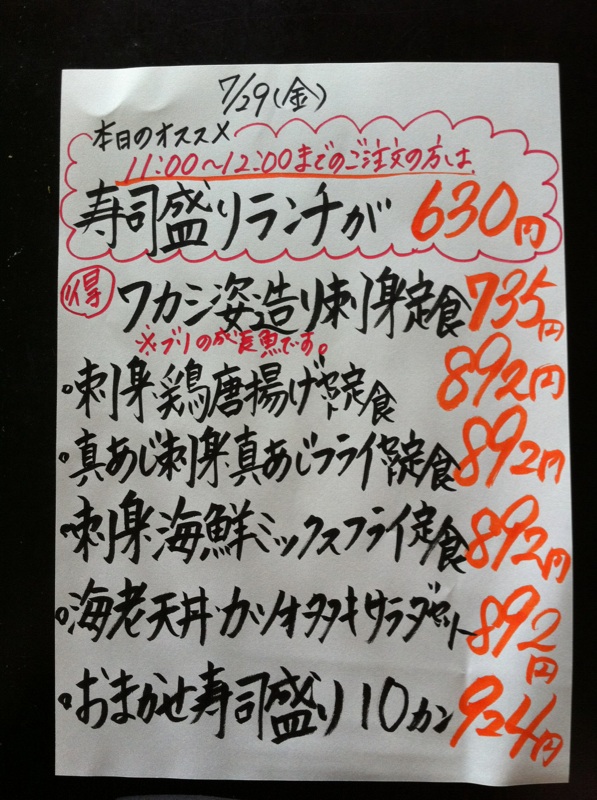 7/29(金)
本日のオススメ
11:00〜12:00までのご注文の方は
寿司盛りランチが 630円
得 ワカシ姿造り刺身定食 735円
※ブリの成長魚です。
・刺身鶏唐揚げセット定食 892円
・真あじ刺身真あじフライセット定食 892円
・刺身海鮮ミックスフライ定食 892円
・海老天丼・カツオタタキサラダセット 892円
・おまかせ寿司盛り10カン 924円